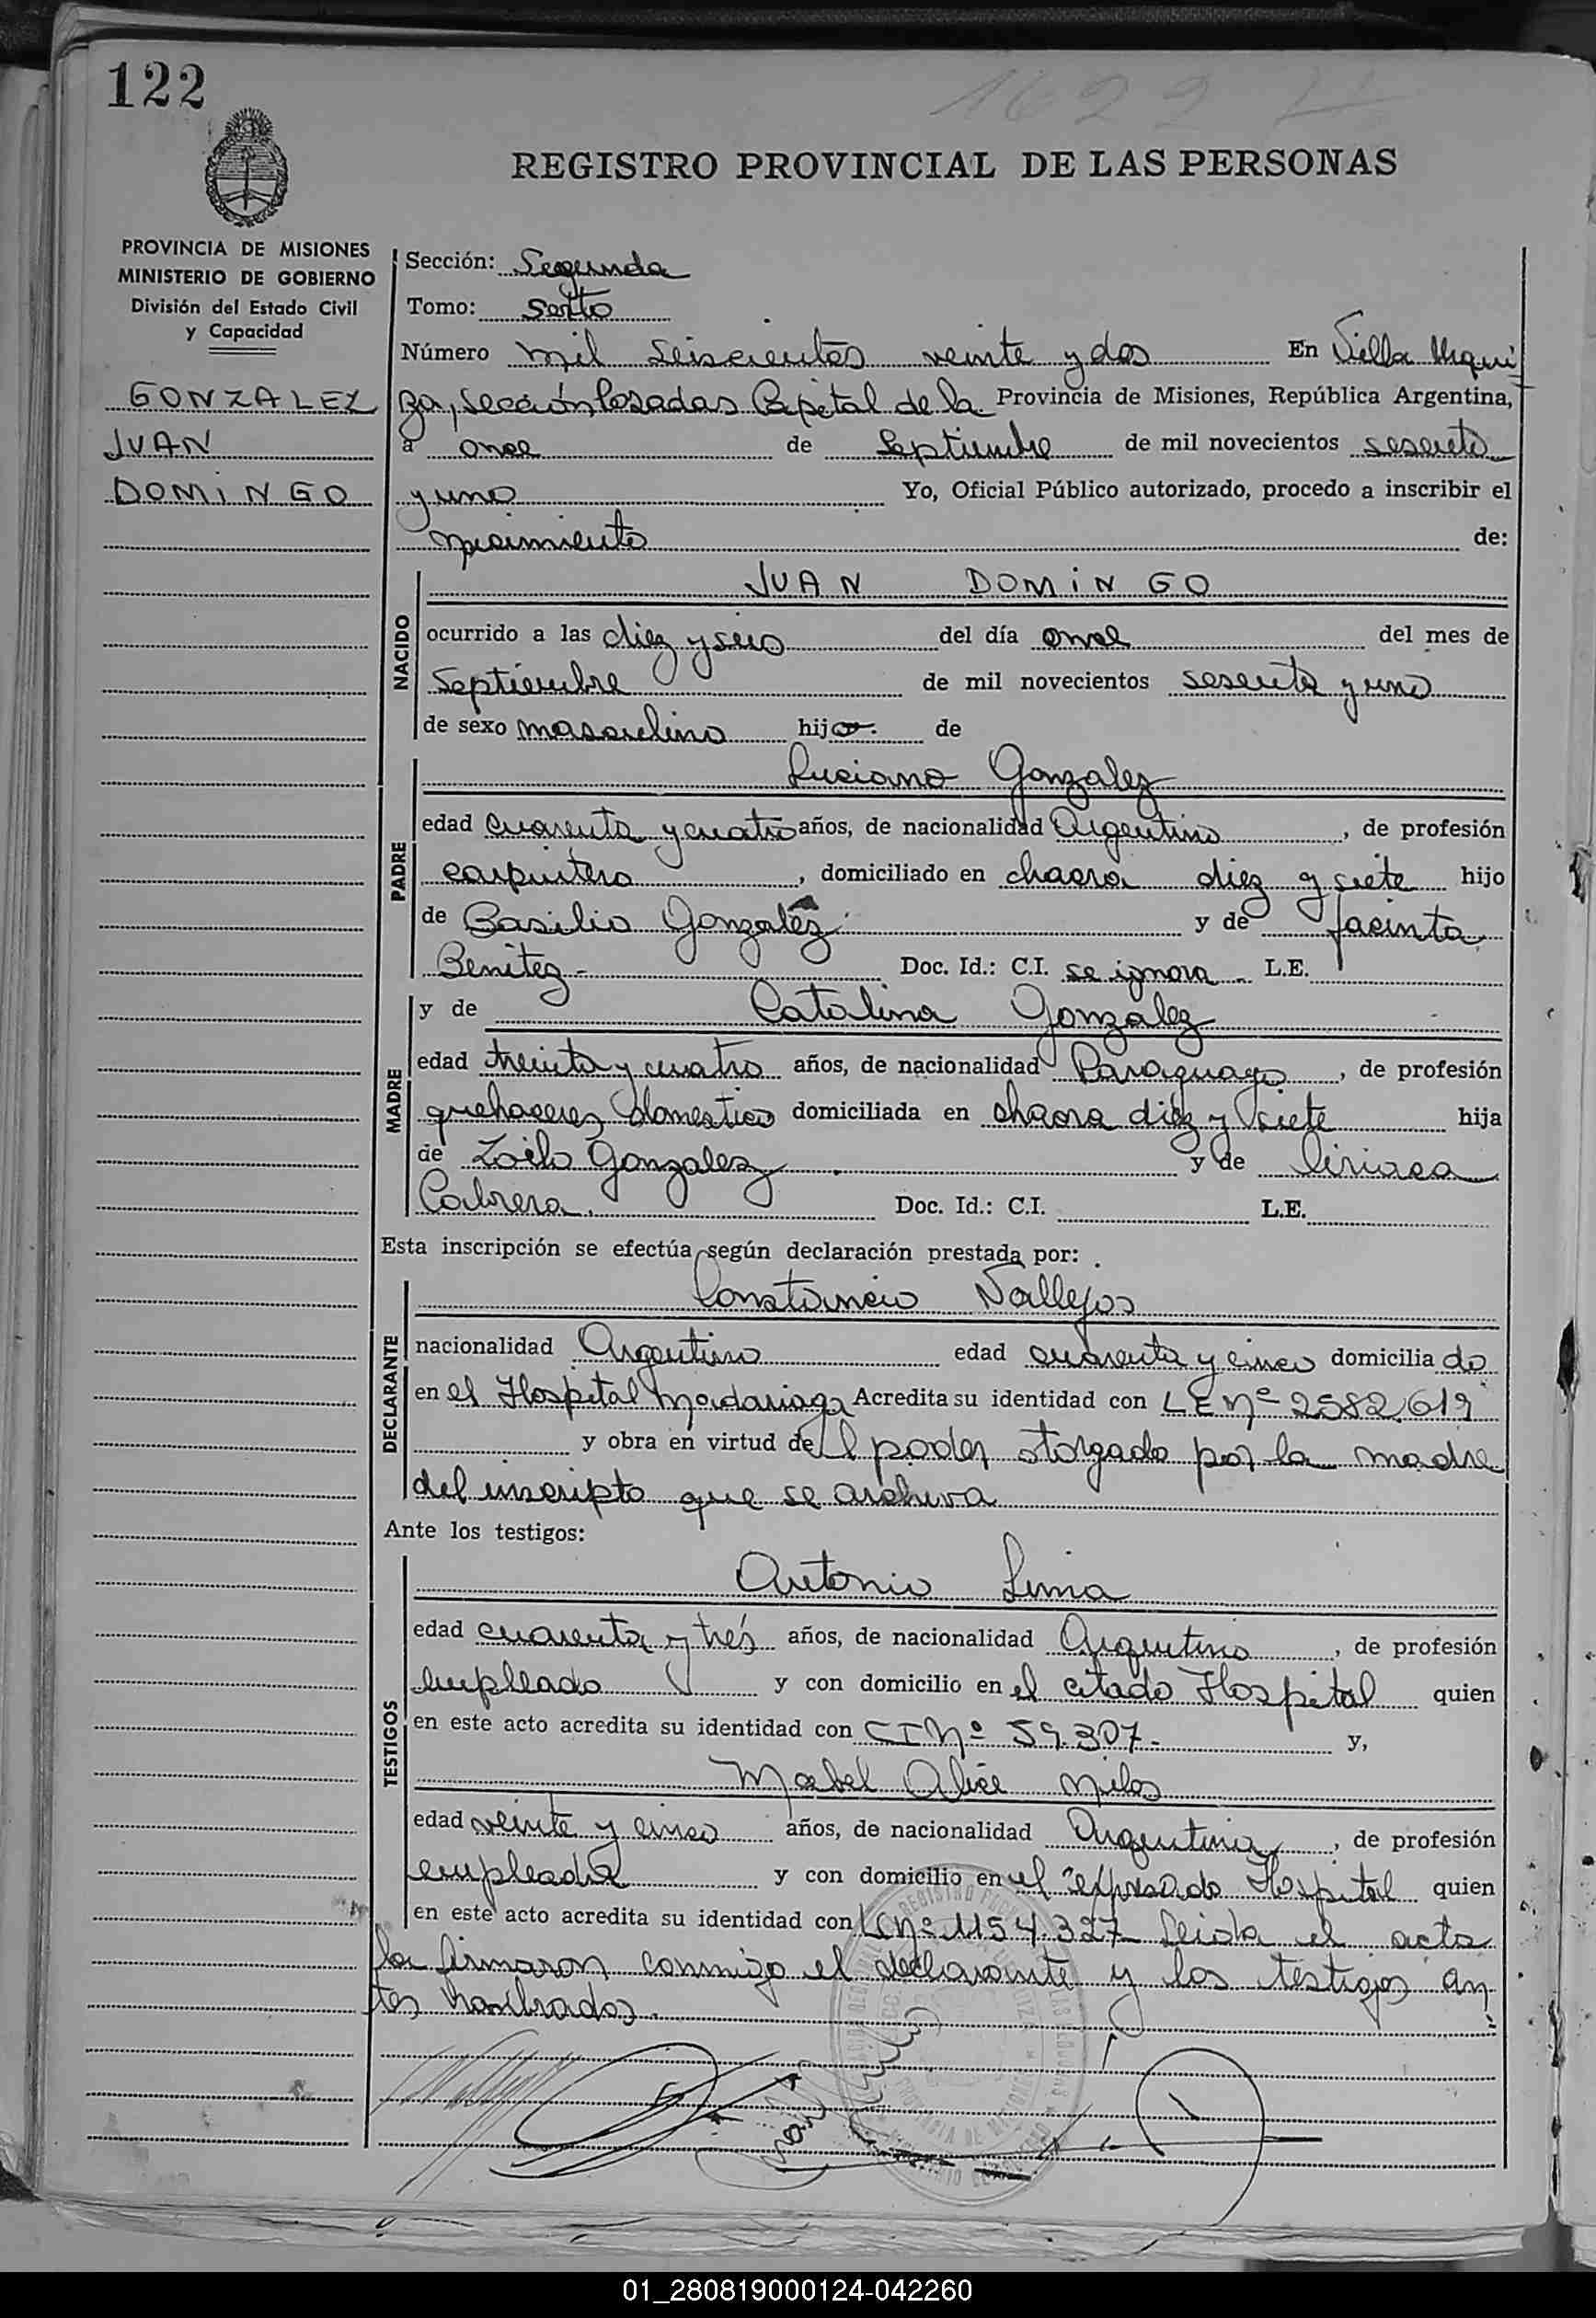 122
1622
REGISTRO PROVINCIAL DE LAS PERSONAS
PROVINCIA DE MISIONES
MINISTERIO DE GOBIERNO
División del Estado Civil
y Capacidad
GONZALEZ
JUAN
DOMINGO
Sección: Segunda
Tomo: Sexto
Número mil seiscientos veinte y dos En Villa Urqui
za, sección Posadas Capital de la Provincia de Misiones, República Argentina,
a once de Septiembre de mil novecientos sesenta
y uno Yo, Oficial Público autorizado, procedo a inscribir el
nacimiento de:
NACIDO
JUAN DOMINGO
ocurrido a las diez y seis del día once del mes de
Septiembre de mil novecientos sesenta y uno
de sexo masculino hijo de
PADRE
Luciano Gonzalez
edad cuarenta y cuatro años, de nacionalidad Argentino, de profesión
carpintero, domiciliado en chacra diez y siete hijo
de Basilio González y de Jacinta
Benitez Doc. Id.: C.I. se ignora L.E.
MADRE
y de Catalina Gonzalez
edad treinta y cuatro años, de nacionalidad Paraguaya, de profesión
quehaceres domestico domiciliada en chacra diez y siete hija
de Zoilo Gonzalez y de Ciriaca
Cabrera. Doc. Id.: C.I. L.E.
Esta inscripción se efectúa según declaración prestada por:
DECLARANTE
Constancio Vallejos
nacionalidad Argentino edad cuarenta y cinco domiciliado
en el Hospital Madariaga Acredita su identidad con L E Nº 2582.619
y obra en virtud del poder otorgado por la madre
del inscripto que se archiva
Ante los testigos:
TESTIGOS
Antonio Lima
edad cuarenta y trés años, de nacionalidad Argentino, de profesión
empleado y con domicilio en el citado Hospital quien
en este acto acredita su identidad con CI Nº 59.307- y,
Mabel Alice
edad veinte y cinco años, de nacionalidad Argentina, de profesión
empleada y con domicilio en el expresado Hospital quien
en este acto acredita su identidad con LC Nº 1154.327 Leida el acta
la firmaron conmigo el declarante y los testigos an
tes nombrados.
01_280819000124-042260